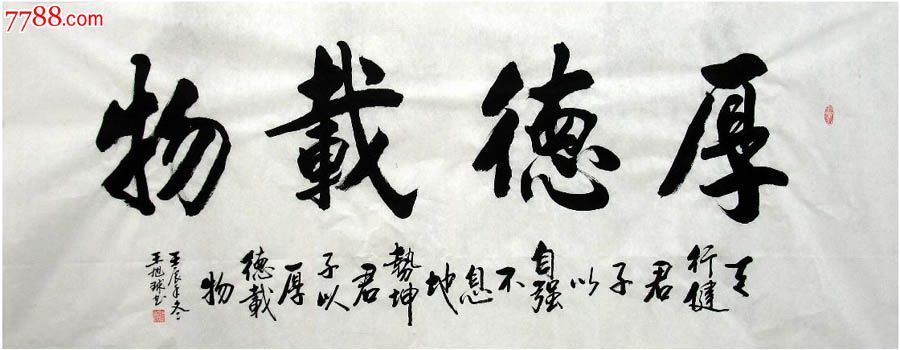 7788.com
厚德載物
天行健君子以自强不息地勢坤君子以厚德載物
壬辰年冬
王旭